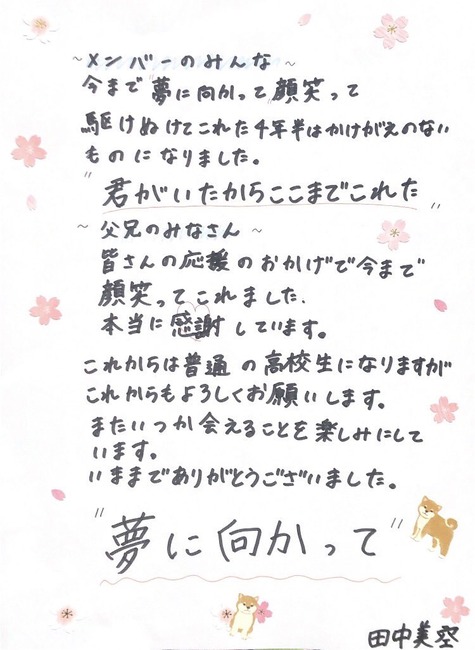 ~メンバーのみんな~
今まで"夢に向かって"顔笑って
駆けぬけてこれた4年半はかけがえのない
ものになりました。
"君がいたからここまでこれた"
~父兄のみなさん~
皆さんの応援のおかげで今まで
顔笑ってこれました、
本当に感謝しています。
これからは普通の高校生になりますが
これからもよろしくお願いします。
またいつか会えることを楽しみにして
います。
いままでありがとうございました。
"夢に向かって"
田中美空